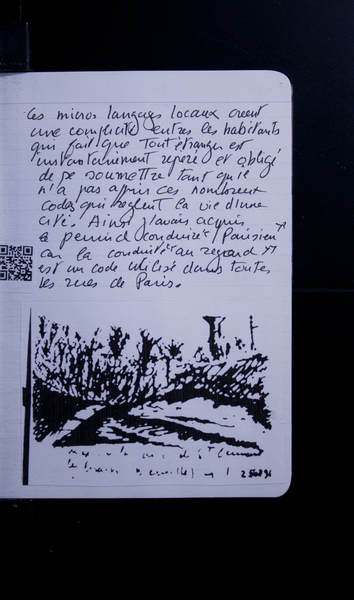 Ces micros langages locaux créent
une complicité entres les habitants
qui fait que tout étranger est
instantanément repéré et obligé
de se soumettre tant qu'il
n'a pas appris ces nombreux
codes qui règlent la vie d'une
cité. Ainsi j'avais acquis
le permis d conduire / Parisien
car la conduite au regard
est un code utilisé dans toutes
les rues de Paris.